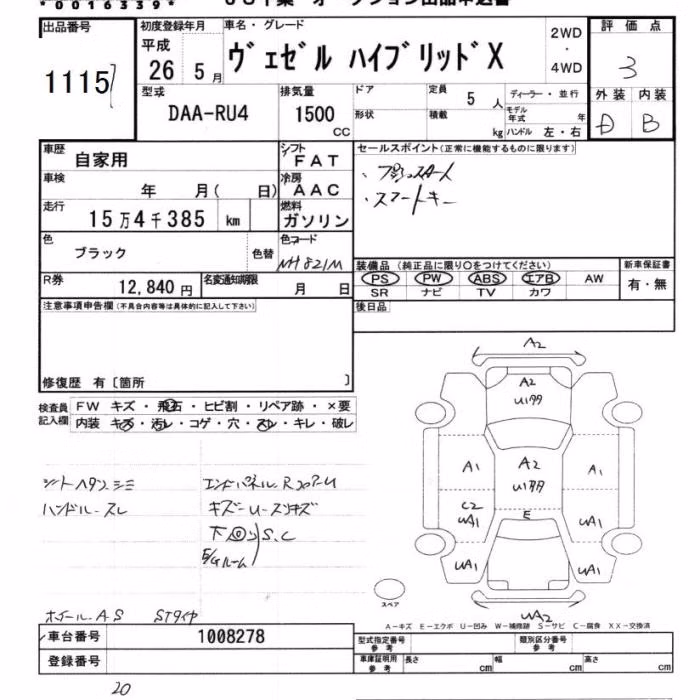 *0016339*
出品番号
1115
初度登録年月
平成
26 5月
車名・グレード
ヴェゼル ハイブリッドX
2WD
・
4WD
評価点
3
外装 内装
D B
型式
DAA-RU4
排気量
1500
CC
ドア
形状
定員 5人
積載 kg
ディーラー・並行
モデル年式 年
ハンドル 左・右
車歴
自家用
シフト
FAT
車検
年 月( 日)
冷房
AAC
走行
15万4千385 km
燃料
ガソリン
色
ブラック
色替
色コード
NH821M
R券
12,840円
名変通知期限
月 日
セールスポイント(正常に機能するものに限ります)
・プッシュスタート
・スマートキー
装備品(純正品に限り○をつけてください)
PS PW ABS エアB AW
SR ナビ TV カワ
新車保証書
有・無
後日品
注意事項申告欄(不具合内容等は具体的に記入して下さい)
修復歴 有〔箇所 〕
検査員
記入欄
FW キズ・飛石・ヒビ割・リペア跡・×要
内装 キズ・汚レ・コゲ・穴・スレ・キレ・破レ
シートヘタリシミ
ハンドルスレ
エンドパネルR
キズーU-スリキズ
下回り S.C
E/Gルーム
ホイールAS STタイヤ
A2
A2
U177
A1
A2
U177
A1
C2
UA1
E
UA1
UA1
UA1
UA2
スペア
A-キズ E-エクボ U-凹み W-補修跡 S-サビ C-腐食 XX-交換済
車台番号
1008278
登録番号
型式指定番号
参考
類別区分番号
参考
車庫証明用
参考
長さ cm
幅 cm
高さ cm
20